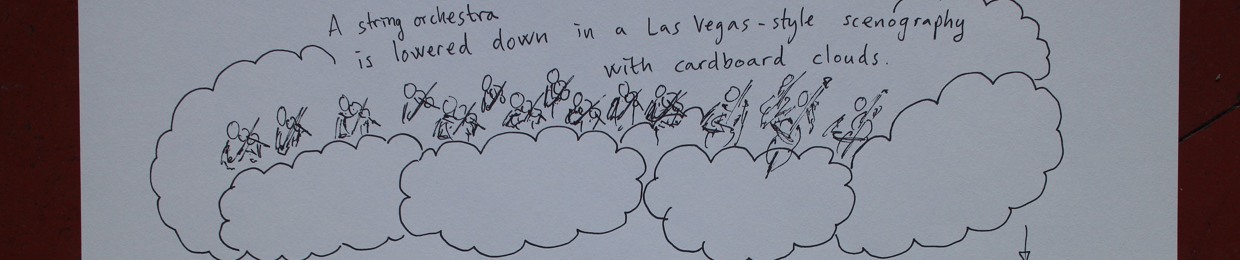 A string orchestra
is lowered down in a Las Vegas-style scenography
with cardboard clouds.